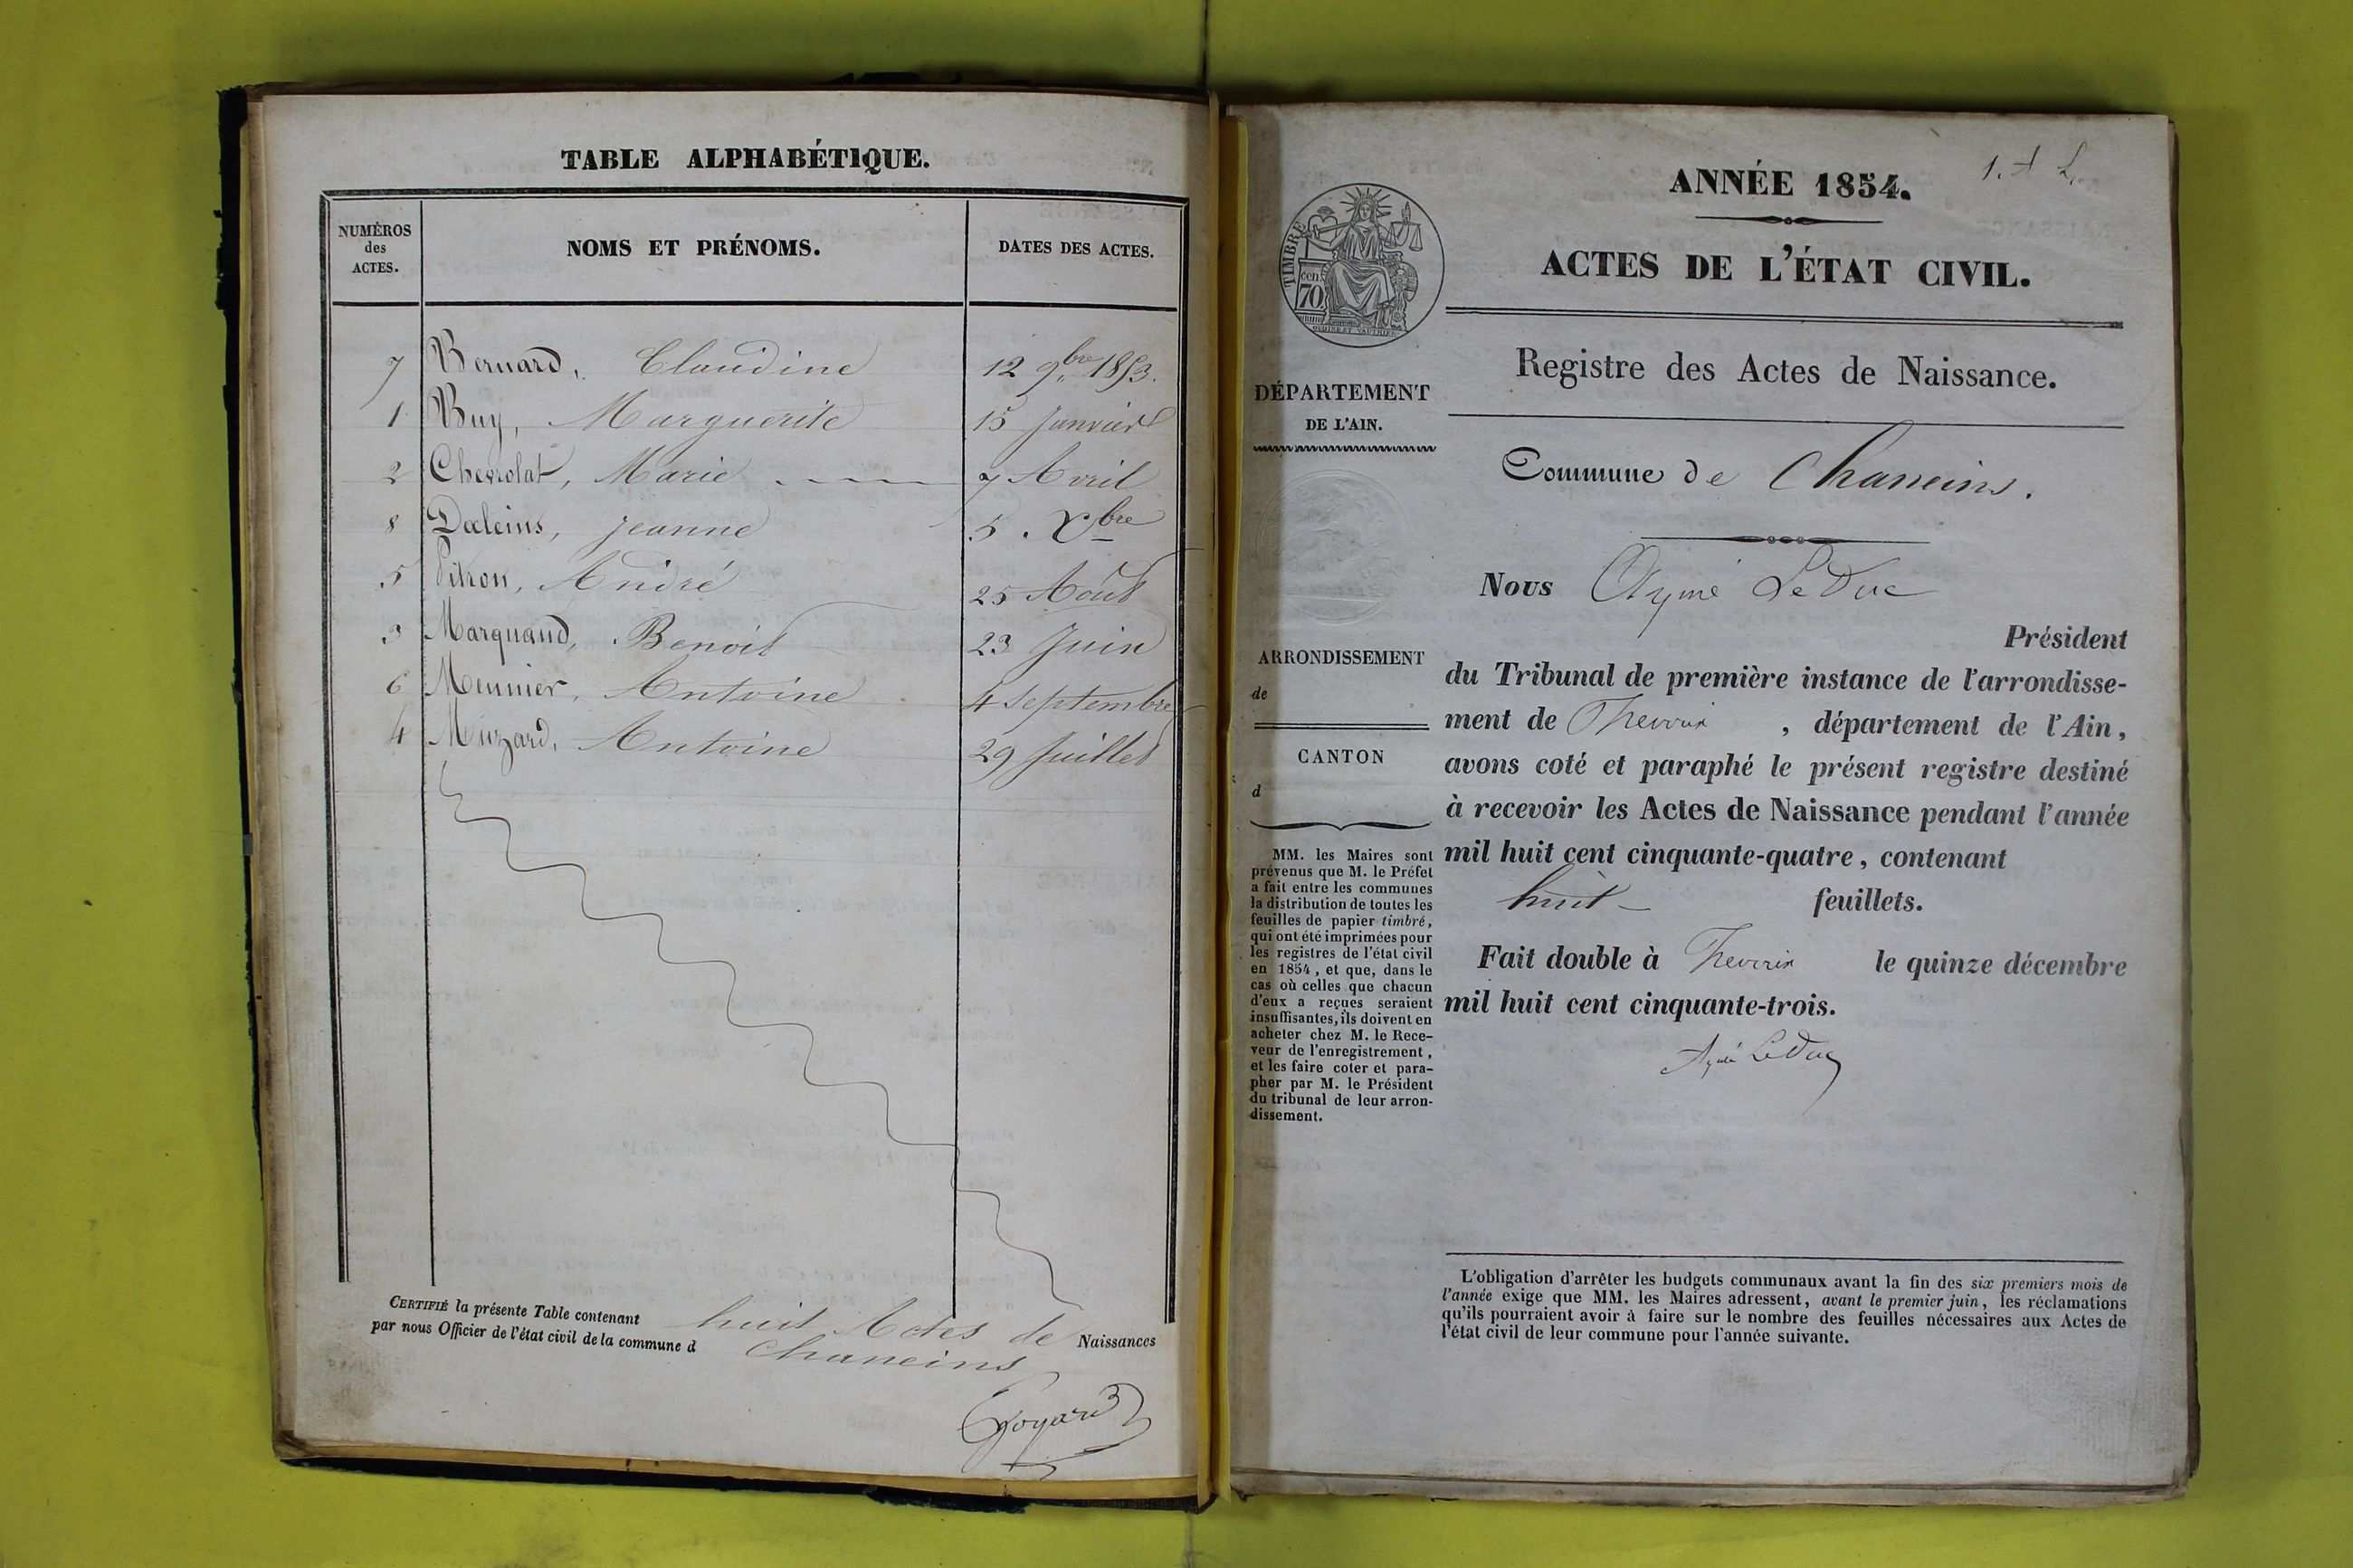 TABLE ALPHABÉTIQUE.
NUMÉROS
des
ACTES.
NOMS ET PRÉNOMS.
DATES DES ACTES.
7 Bernard, Claudine 12 9bre 1853.
1 Buy, Marguerite 15 Janvier
2 Chevrolat, Marie 7 Avril
8 Daleins, Jeanne 5. Xbre
5 André 25 Août
3 Marquand, Benoit 23 Juin
6 Meunier, Antoine 4 Septembre
4 Muzard, Antoine 29 Juillet
CERTIFIÉ la présente Table contenant huit Actes de Naissances
par nous Officier de l'état civil de la commune d Chaneins
Goyard
1. A L.
ANNÉE 1854.
ACTES DE L'ÉTAT CIVIL.
TIMBRE
cen
70
Registre des Actes de Naissance.
DÉPARTEMENT
DE L'AIN.
Commune de Chaneins.
Nous Aymé LeDuc
Président
ARRONDISSEMENT
de
CANTON
d
du Tribunal de première instance de l'arrondisse-
ment de Trevoux , département de l'Ain,
avons coté et paraphé le présent registre destiné
à recevoir les Actes de Naissance pendant l'année
mil huit cent cinquante-quatre, contenant
huit feuillets.
Fait double à Trevoux le quinze décembre
mil huit cent cinquante-trois.
Aymé LeDuc
MM. les Maires sont
prévenus que M. le Préfet
a fait entre les communes
la distribution de toutes les
feuilles de papier timbré,
qui ont été imprimées pour
les registres de l'état civil
en 1854, et que, dans le
cas où celles que chacun
d'eux a reçues seraient
insuffisantes, ils doivent en
acheter chez M. le Rece-
veur de l'enregistrement,
et les faire coter et para-
pher par M. le Président
du tribunal de leur arron-
dissement.
L'obligation d'arrêter les budgets communaux avant la fin des six premiers mois de
l'année exige que MM. les Maires adressent, avant le premier juin, les réclamations
qu'ils pourraient avoir à faire sur le nombre des feuilles nécessaires aux Actes de
l'état civil de leur commune pour l'année suivante.